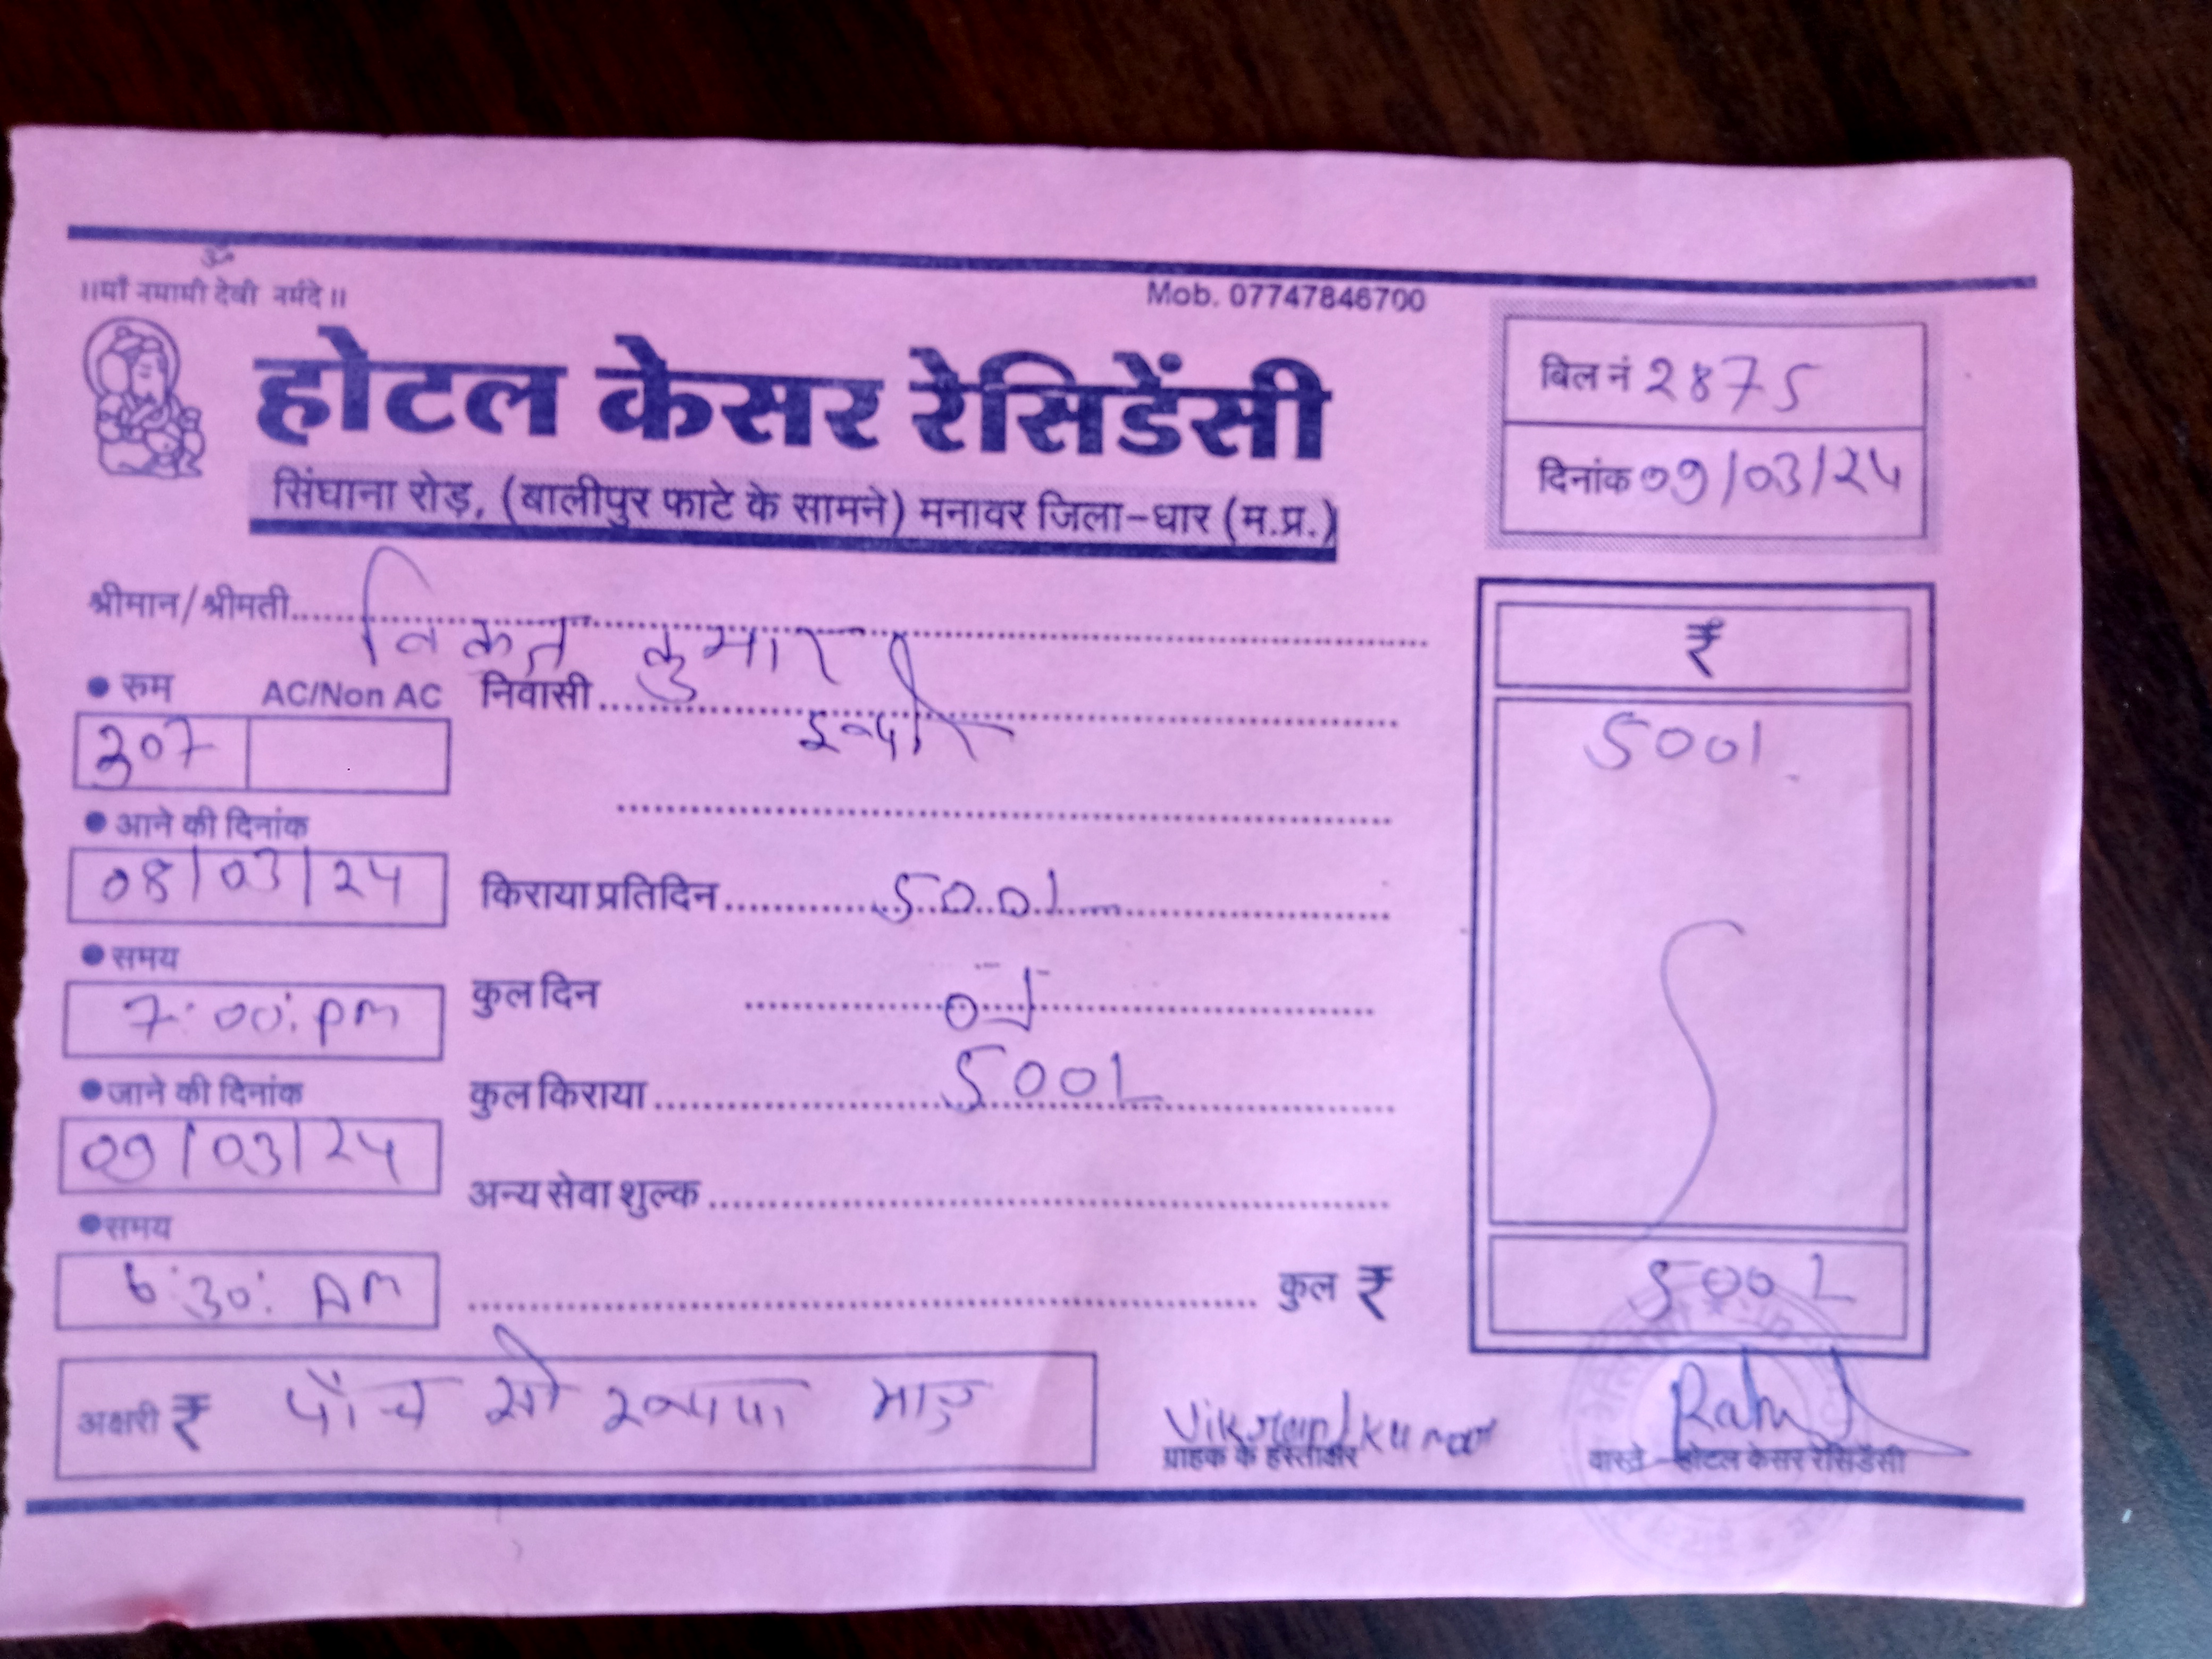 ॐ
।।माँ नमामी देवी नर्मदे।।
Mob. 07747846700
होटल केसर रेसिडेंसी
सिंघाना रोड़, (बालीपुर फाटे के सामने) मनावर जिला-धार (म.प्र.)
बिल नं 2875
दिनांक 09/03/24
श्रीमान/श्रीमती विक्रान्त कुमार
रुम AC/Non AC
307
निवासी इन्दौर
₹
500/.
आने की दिनांक
08/03/24
किराया प्रतिदिन 500/-
समय
7:00:pm
कुल दिन
जाने की दिनांक
09/03/24
कुल किराया 500/-
अन्य सेवा शुल्क
समय
6:30: Am
कुल ₹ 500/-
अक्षरी ₹ पाँच सौ रूपया मात्र
Vikrant kumar
ग्राहक के हस्ताक्षर
Rahul
वास्ते - होटल केसर रेसिडेंसी